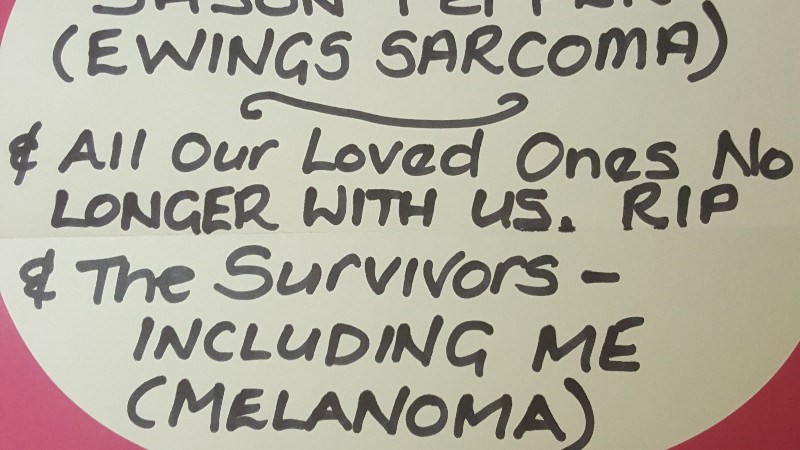 JASON
(EWINGS SARCOMA)
& All Our Loved Ones No
LONGER WITH US. RIP
& The Survivors -
INCLUDING ME
(MELANOMA)